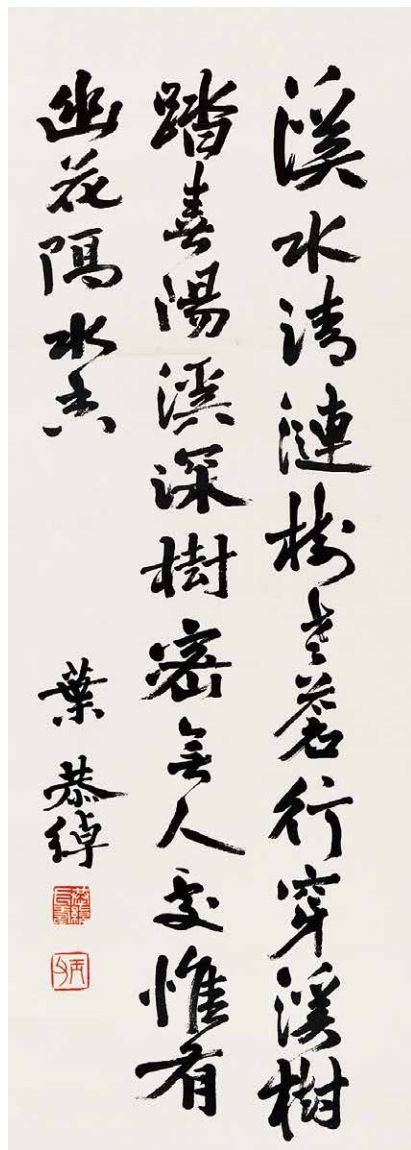 溪水清漣樹老蒼行穿溪樹
踏春陽溪深樹密無人處惟有
幽花隔水香
葉恭綽